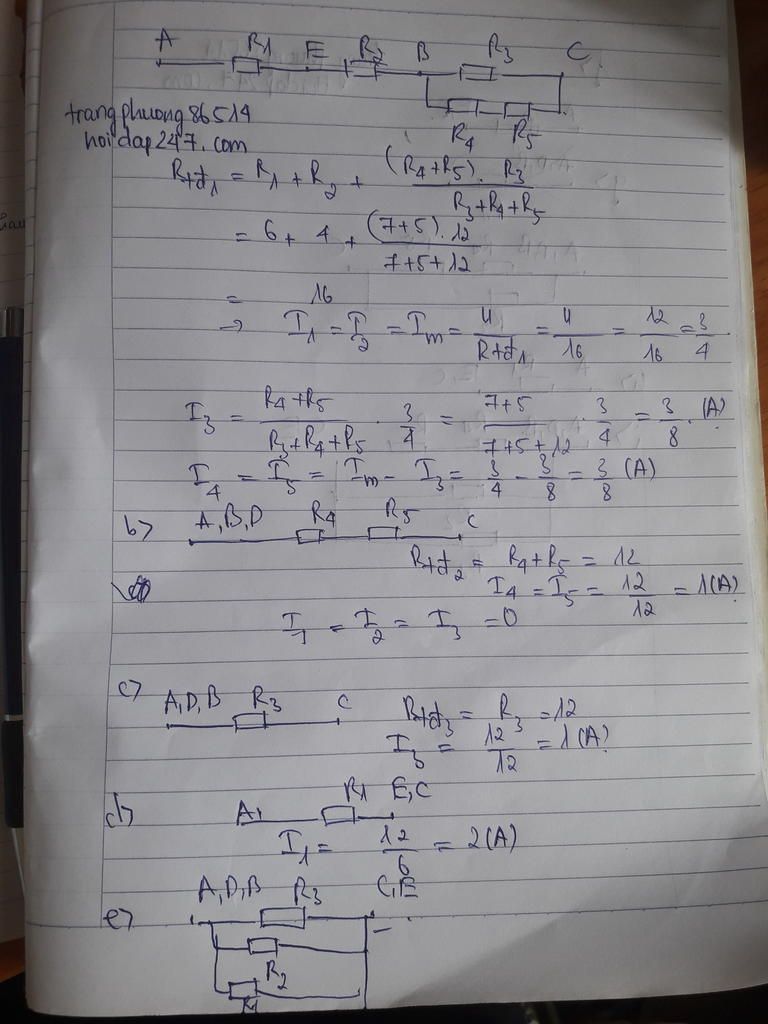 A R1 E R2 B R3 C
R4 R5
trangphuong86514
hoidap247.com
Rtđ1 = R1 + R2 + (R4+R5). R3 / R3+R4+R5
= 6 + 4 + (7+5).12 / 7+5+12
= 16
→ I1 = I2 = Im = U / Rtđ1 = U / 16 = 12 / 16 = 3 / 4
I3 = R4+R5 / R3+R4+R5 . 3 / 4 = 7+5 / 7+5+12 . 3 / 4 = 3 / 8 (A)
I4 = I5 = Im - I3 = 3 / 4 - 3 / 8 = 3 / 8 (A)
b) A,B,D R4 R5 C
Rtđ2 = R4+R5 = 12
I4 = I5 = 12 / 12 = 1(A)
I1 = I2 = I3 = 0
c) A,D,B R3 C Rtđ3 = R3 = 12
I3 = 12 / 12 = 1(A)
d) A, R1 E,C
I1 = 12 / 6 = 2(A)
e) A,D,B R3 C,E
R2